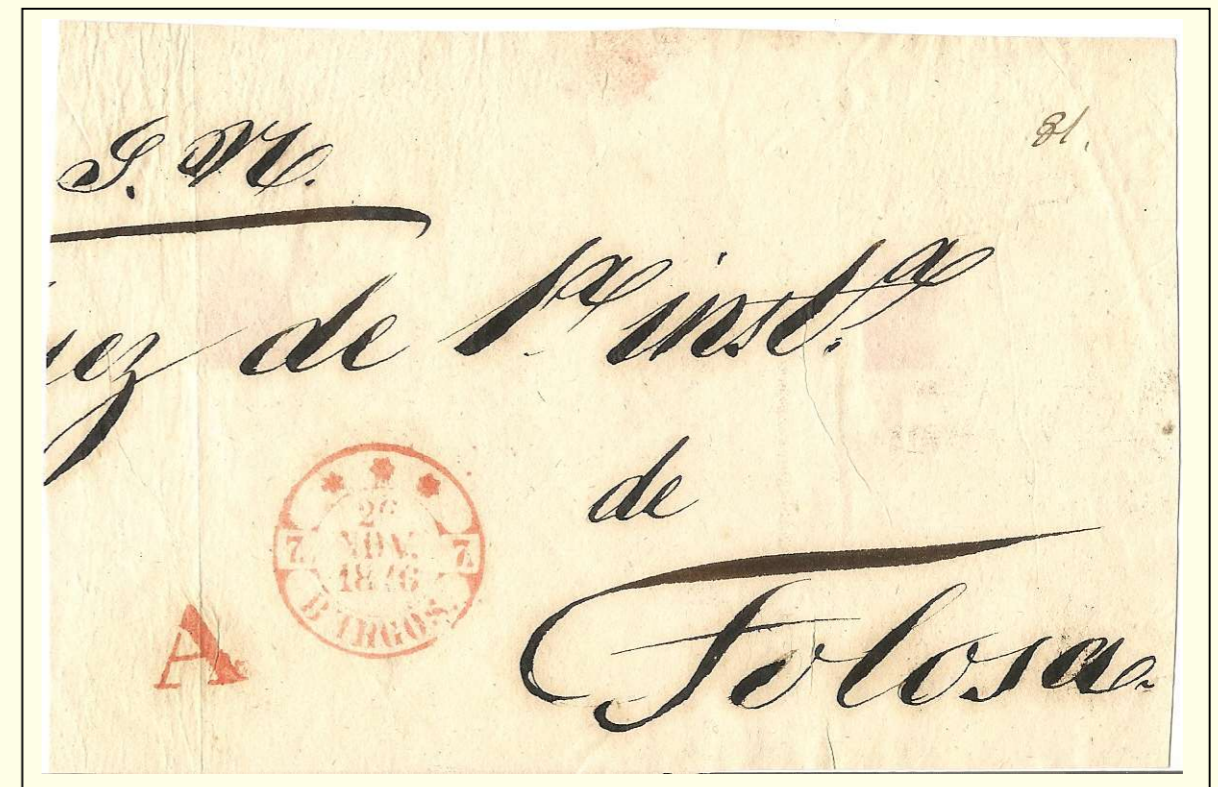 S. N.
81.
uez de 1ª inst.ª
de
Tolosa.
7 7
NOV.
BURGOS.
A